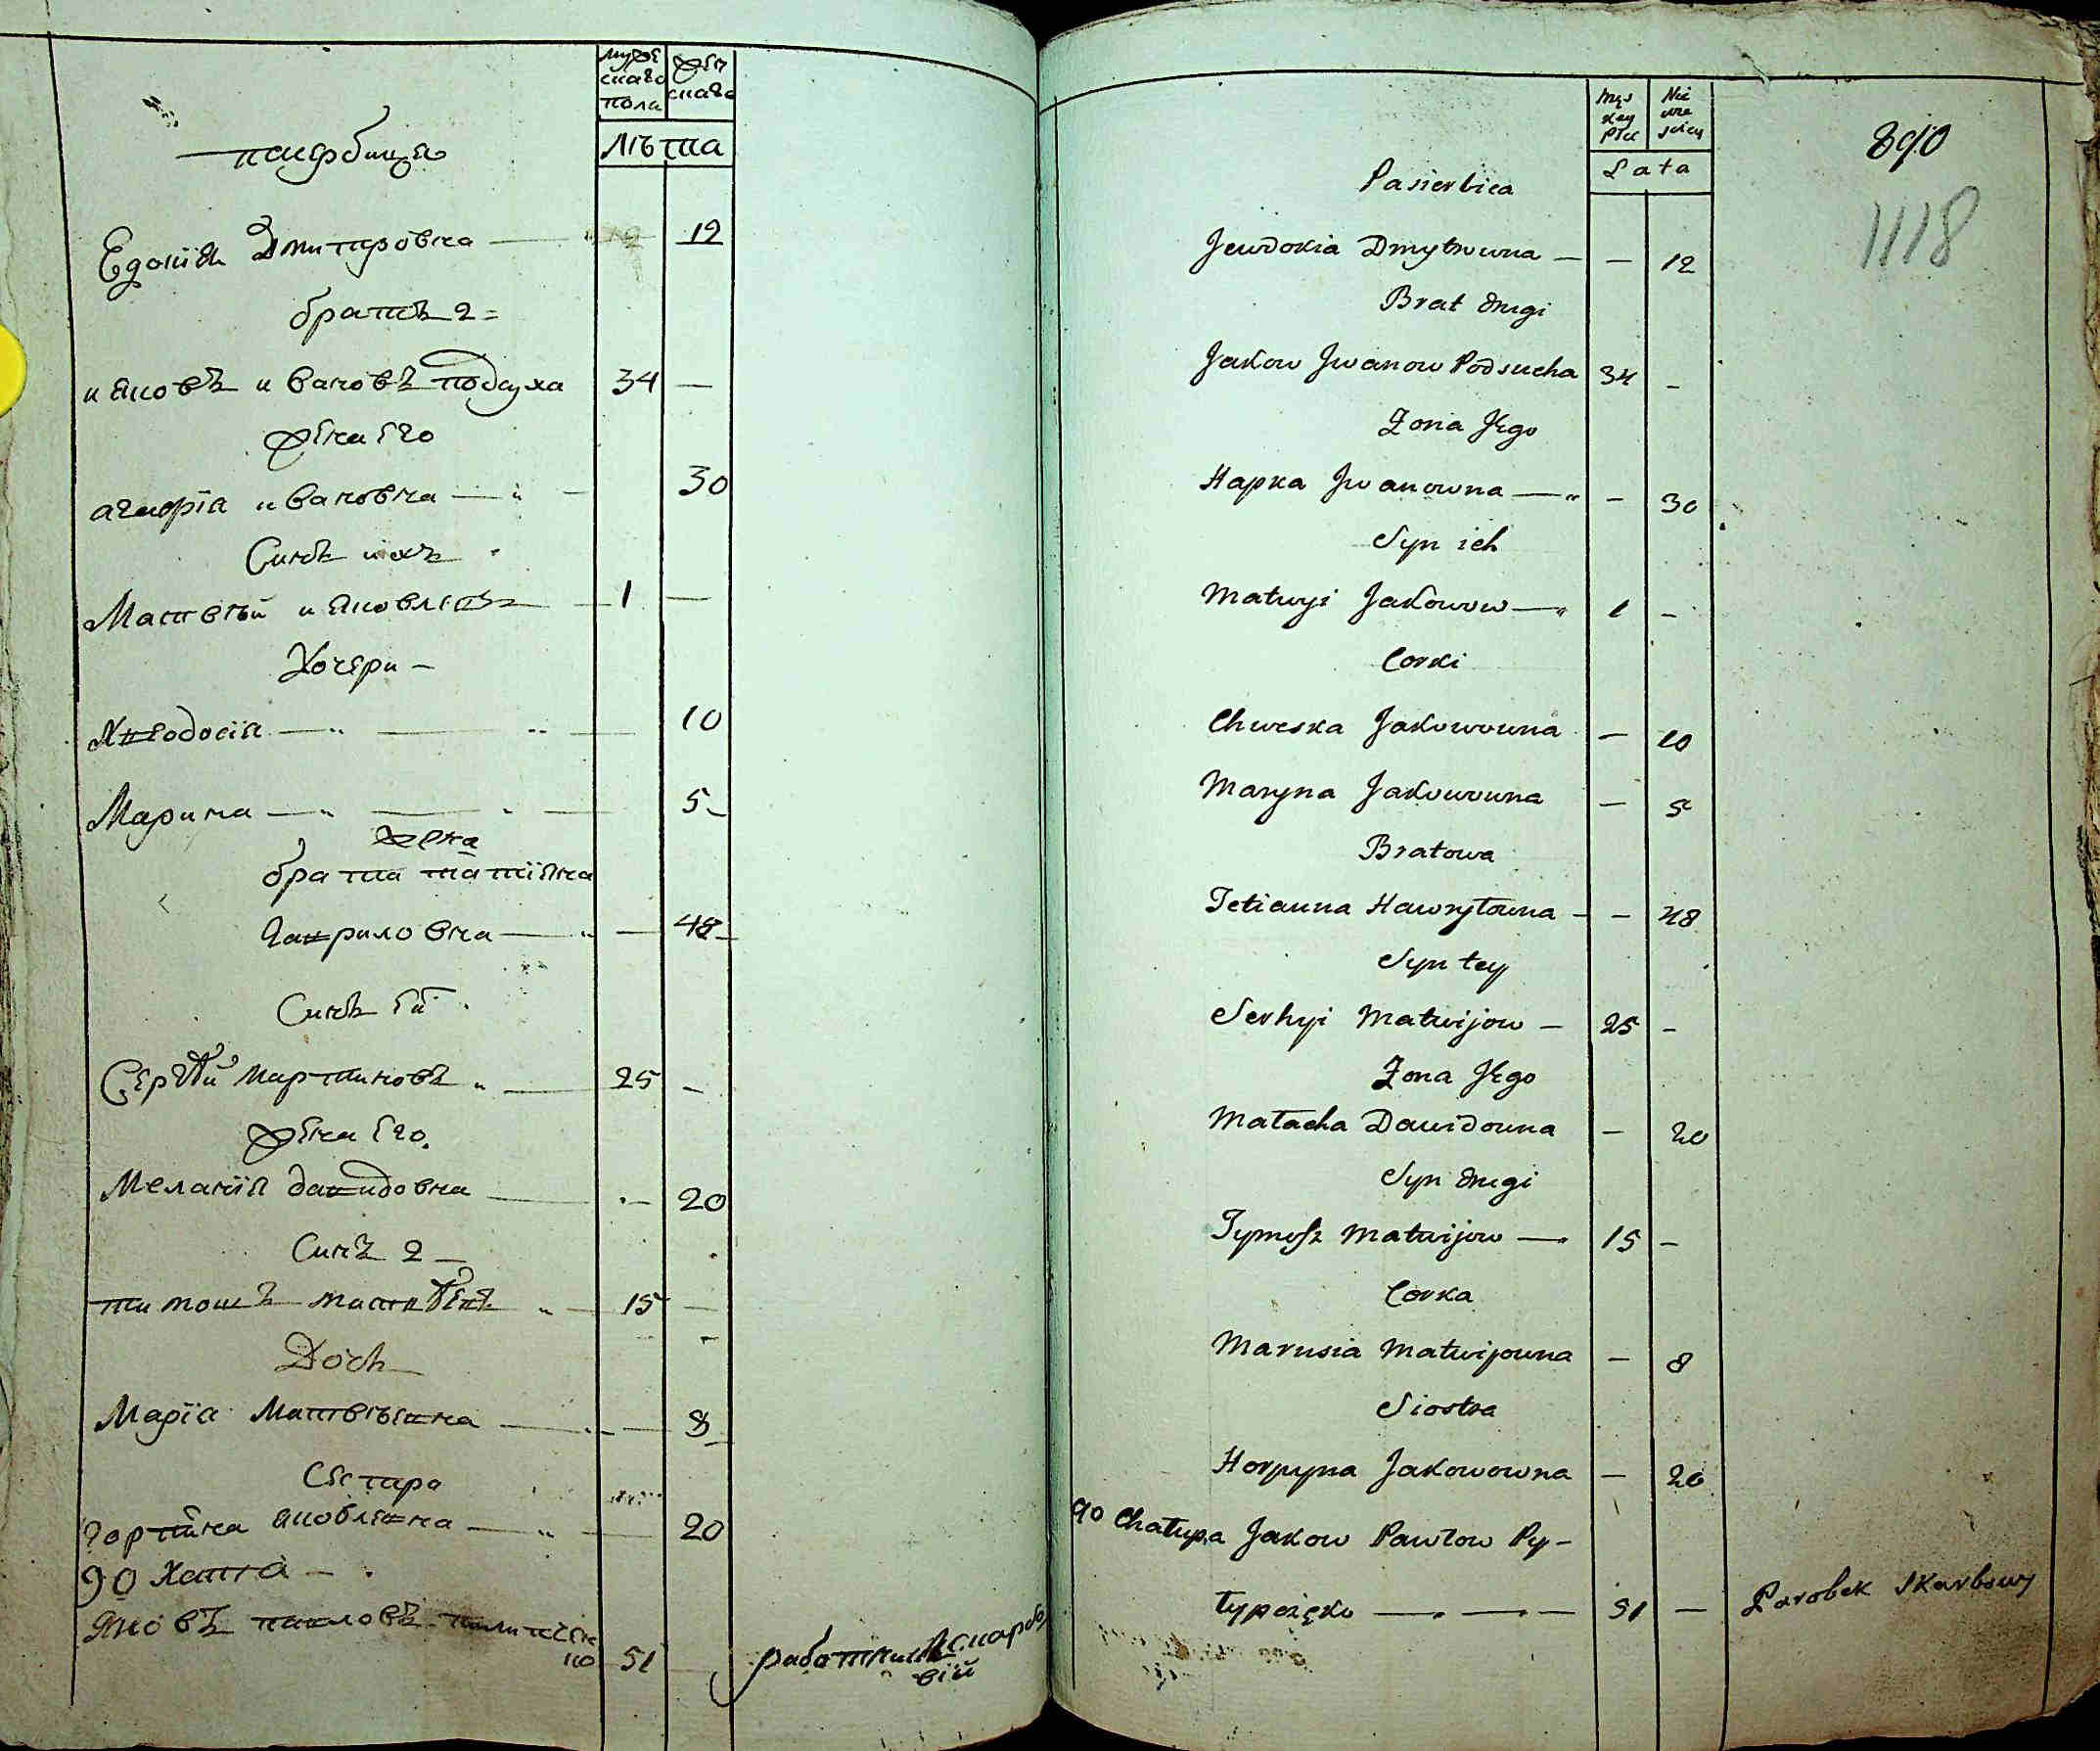 мужескаго пола
женскаго
Лѣтта
пасербица
Едокія Дмитровна 12
братъ 2
ияковъ ивановъ подсуха 34 —
жена его
агафія ивановна 30
Синъ ихъ
Матвѣй ияковлевъ 1 —
Дочери
Хведосія 10
Марина 5
жена
брата татіяна
гавриловна — 48
Синъ ей
Сергѣй Мартиновъ 25 —
жена его
Меланія давидовна — 20
Синъ 2
тимошъ матвѣевъ 15 —
Дочъ
Марія Матвѣевна — 8
Сестра
горпина яковлевна 20
90 Хатта
яковъ павловъ
но 51
работникъ скарбо
вій
Męz
kiey
Płci
Nie
wie
sciey
Lata
890
1118
Pasierbica
Jewdokia Dmytrowna — — 12
Brat drugi
Jakow Jwanow Podsucha 34 —
Zona Jego
Hapka Jwanowna — — 30
Syn ich
Matwyi Jakowow — 1 —
Corki
Chweska Jakowowna — 10
Maryna Jakowowna — 5
Bratowa
Tetianna Hawryłowna — — 48
Syn tey
Serhyi Matwijow — 25 —
Zona Jego
Małacha Dawidowna — 20
Syn drugi
Tymosz Matwijow — 15 —
Corka
Marusia Matwijowna — 8
Siostra
Horpyna Jakowowna — 20
90 Chałupa Jakow Pawłow Py-
51 — Parobek Skarbowy